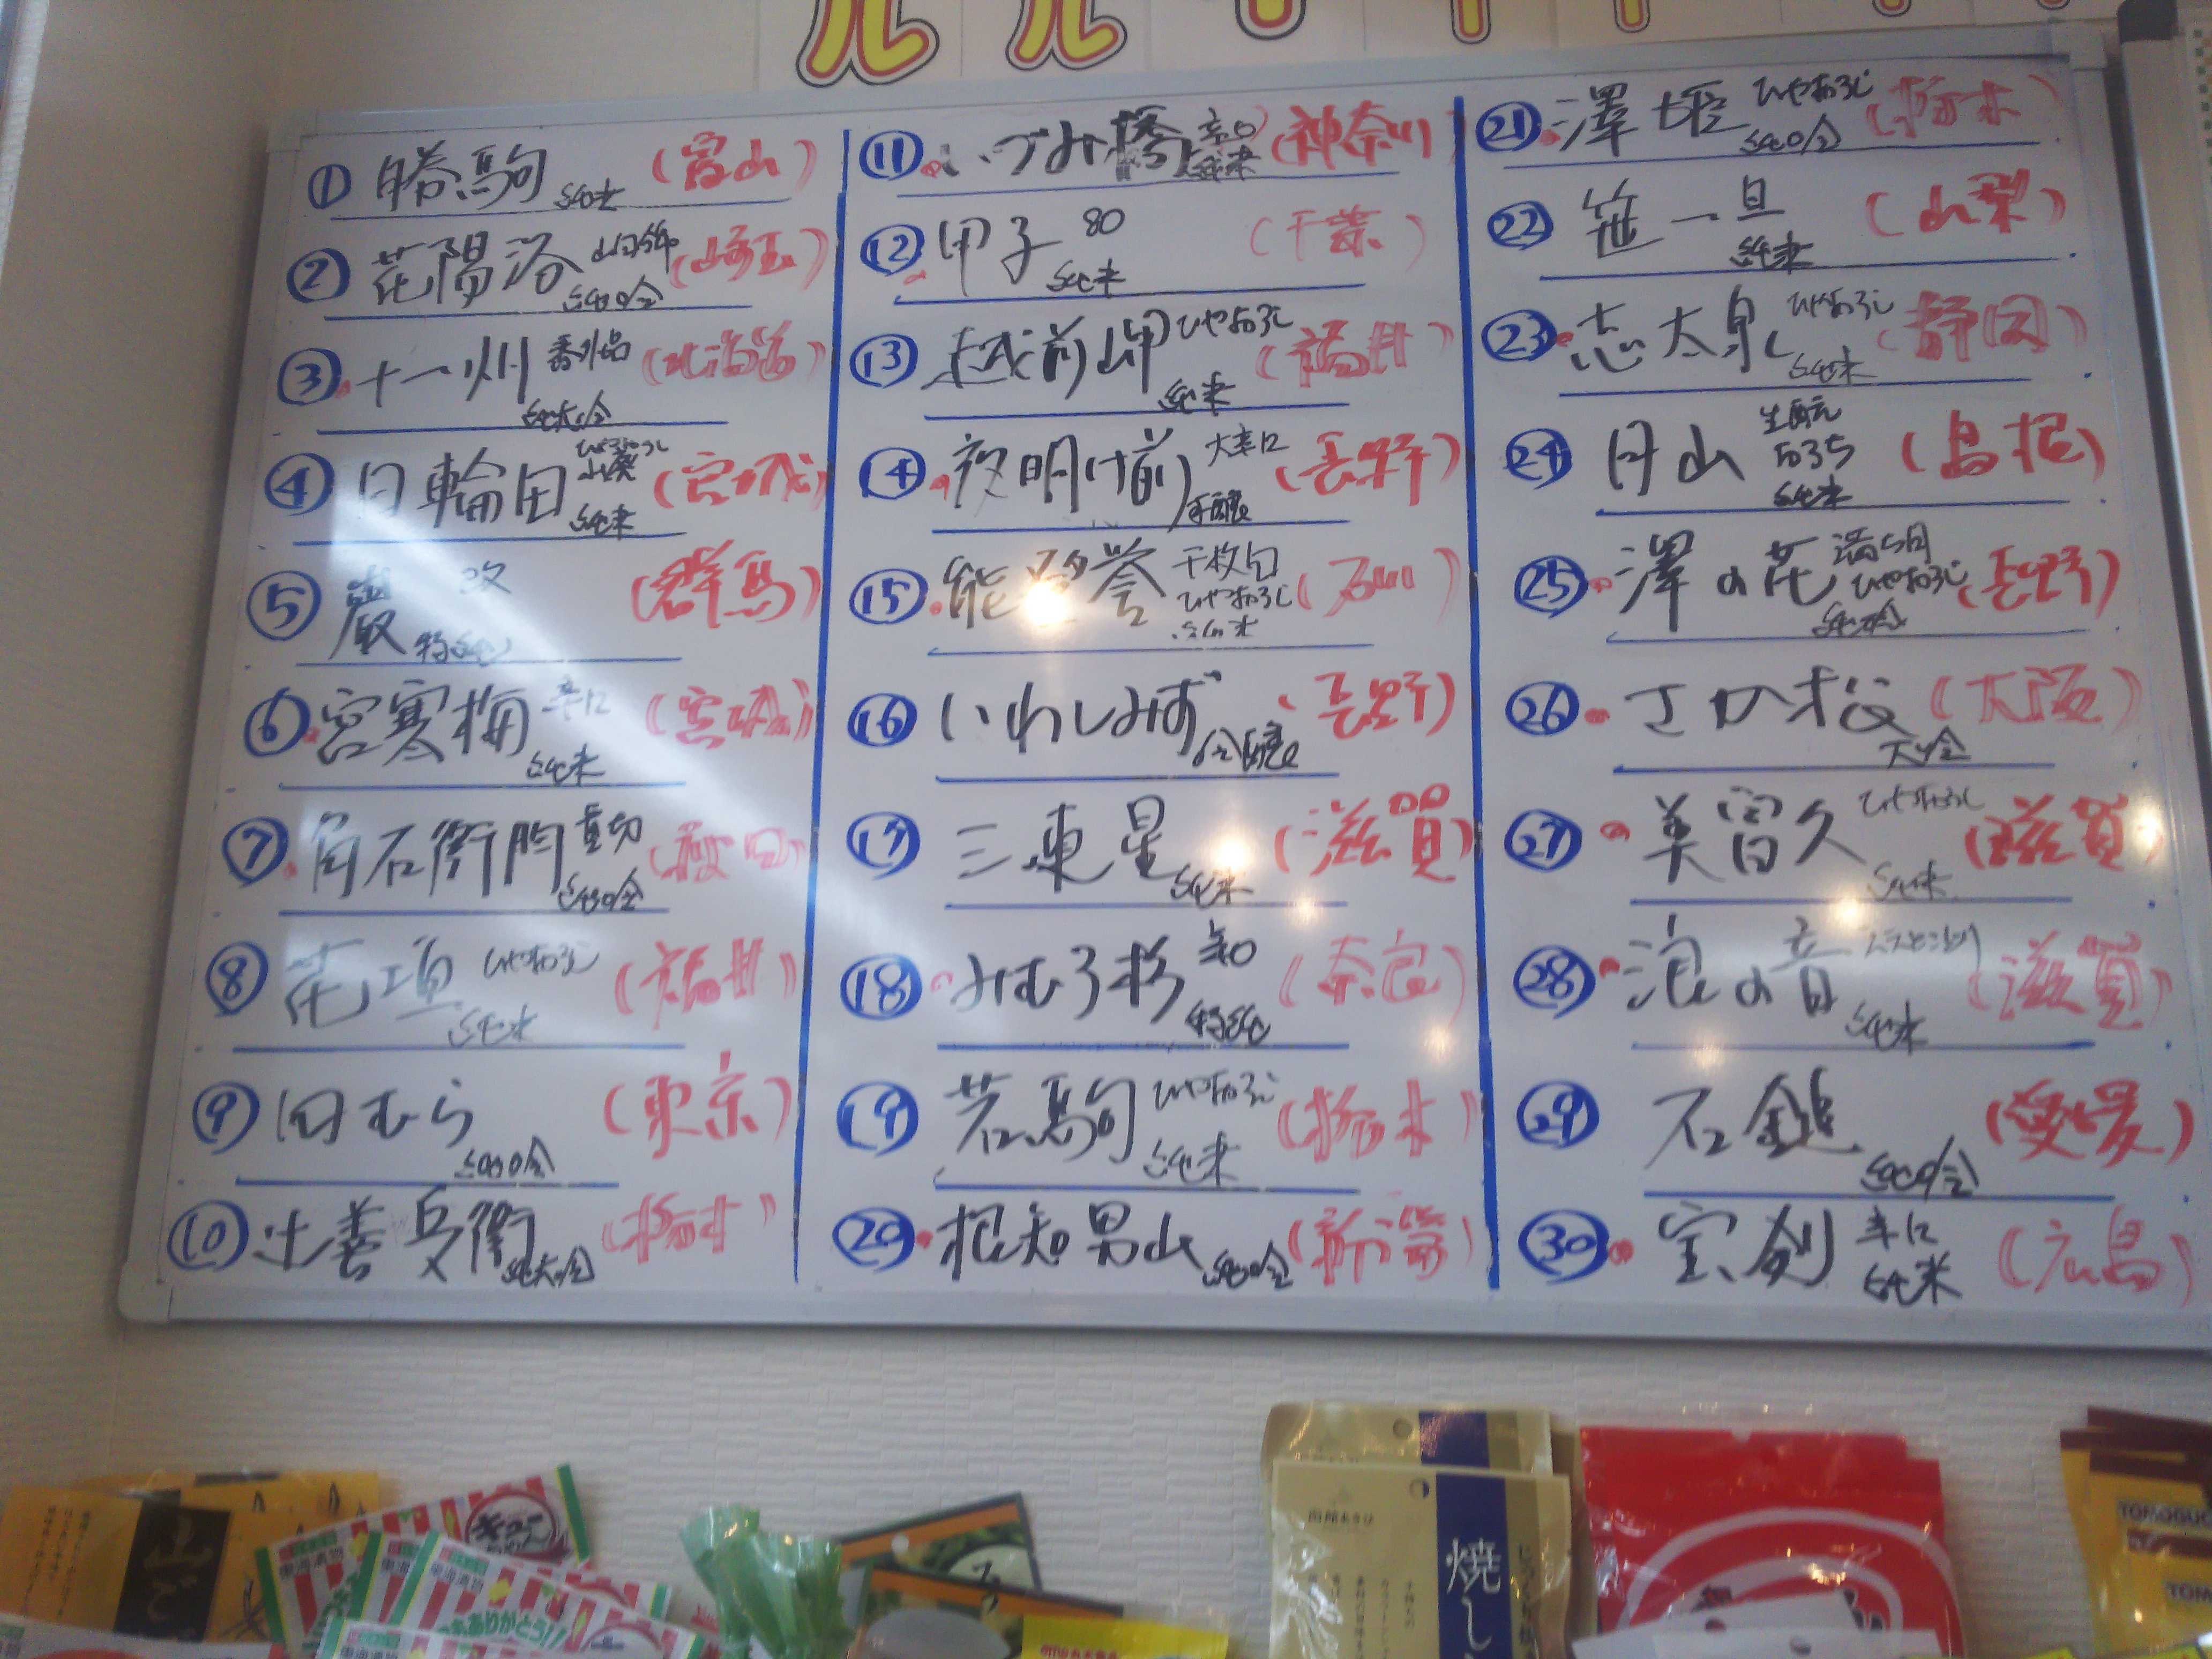 ① 勝駒 純米 (富山)
② 花陽浴 山田錦 純吟 (埼玉)
③ 十一州 番外品 純大吟 (北海道)
④ 日輪田 ひやおろし 山廃 純米 (宮城)
⑤ 巌 改 特純 (群馬)
⑥ 宮寒梅 辛口 純米 (宮城)
⑦ 角右衛門 直切 純吟 (秋田)
⑧ 花垣 ひやおろし 純米 (福井)
⑨ 田むら 純吟 (東京)
⑩ 辻善兵衛 純大吟 (栃木)
⑪ いづみ橋 辛口 純米 (神奈川)
⑫ 甲子 80 純米 (千葉)
⑬ 越前岬 ひやおろし 純米 (福井)
⑭ 夜明け前 大辛口 (長野)
⑮ 能登誉 千枚田 ひやおろし 純米 (石川)
⑯ いわしみず 吟醸 (長野)
⑰ 三連星 純米 (滋賀)
⑱ みむろ杉 辛口 特純 (奈良)
⑲ 若駒 ひやおろし 純米 (栃木)
⑳ 根知男山 純吟 (新潟)
㉑ 澤姫 ひやおろし 純吟 (栃木)
㉒ 笹一 旦 純米 (山梨)
㉓ 志太泉 ひやおろし 純米 (静岡)
㉔ 月山 生酛 純米 (島根)
㉕ 澤の花 ひやおろし 純吟 (長野)
㉖ さか松 大吟 (大阪)
㉗ 美冨久 ひやおろし 純米 (滋賀)
㉘ 浪の音 純米 (滋賀)
㉙ 石鎚 純吟 (愛媛)
㉚ 宝剣 辛口 純米 (広島)
焼し
ありがとう!!
東海漬物
TOMOGUC
TOM